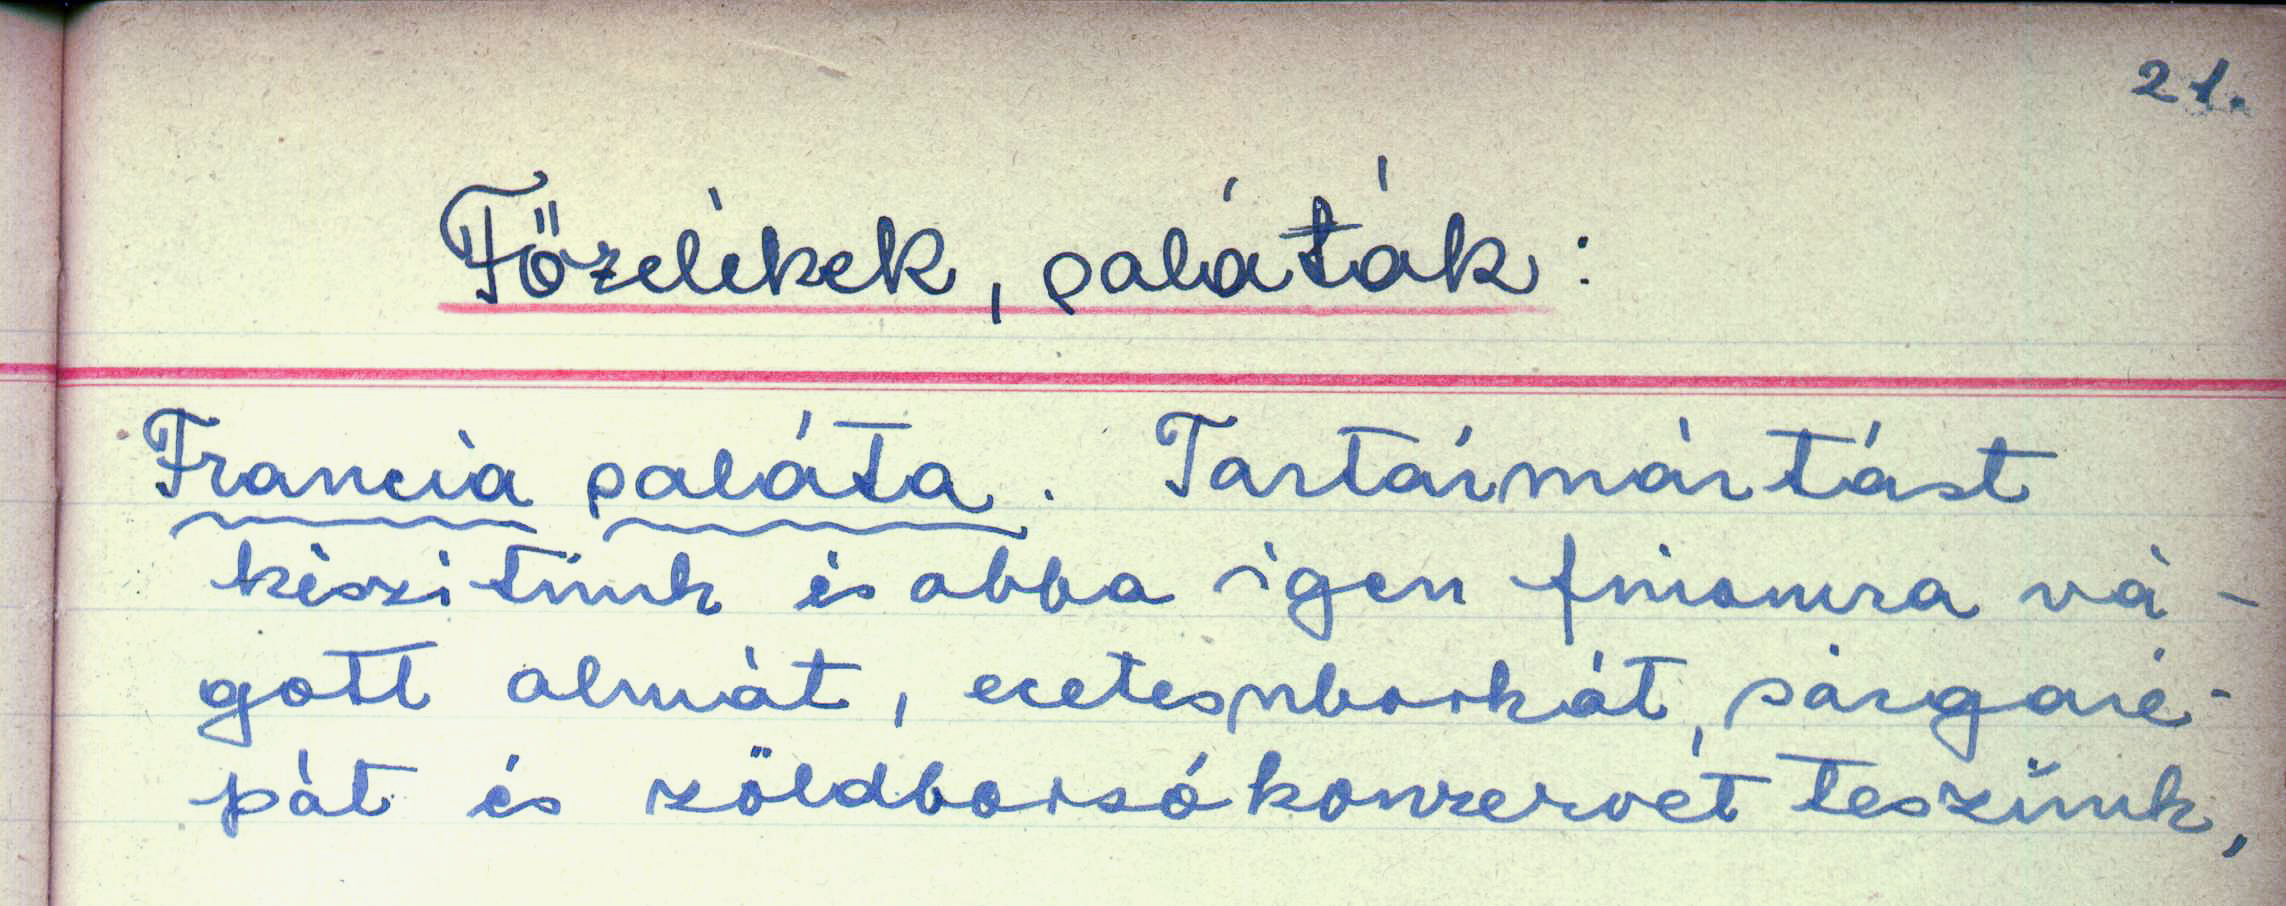 21.
Főzelékek, saláták:
Francia saláta. Tartármártást
készitünk és abba igen finomra vá-
gott almát, ecetesuborkát, sárgaré-
pát és zöldborsókonzervet teszünk,